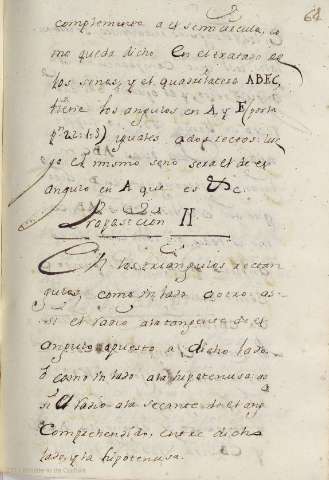 61
complemento a el semicirculo, co
mo queda dicho en el tratado de
los senos, y el quadrilatero ABEC,
tiene los angulos en A, y E (por la
pn 22. l. 3) yguales a dos rectos: lue
go el mismo seno sera el de el
angulo en A que es &c.
Proposicion II
En los triangulos rectan
gulos, como un lado a otro as
si el radio a la tangente de el
angulo opuesto a dicho lado,
o como un lado a la hipotenusa, as
si el radio a la secante de el ang
comprehendido entre dicho
lado, y la hipotenusa.